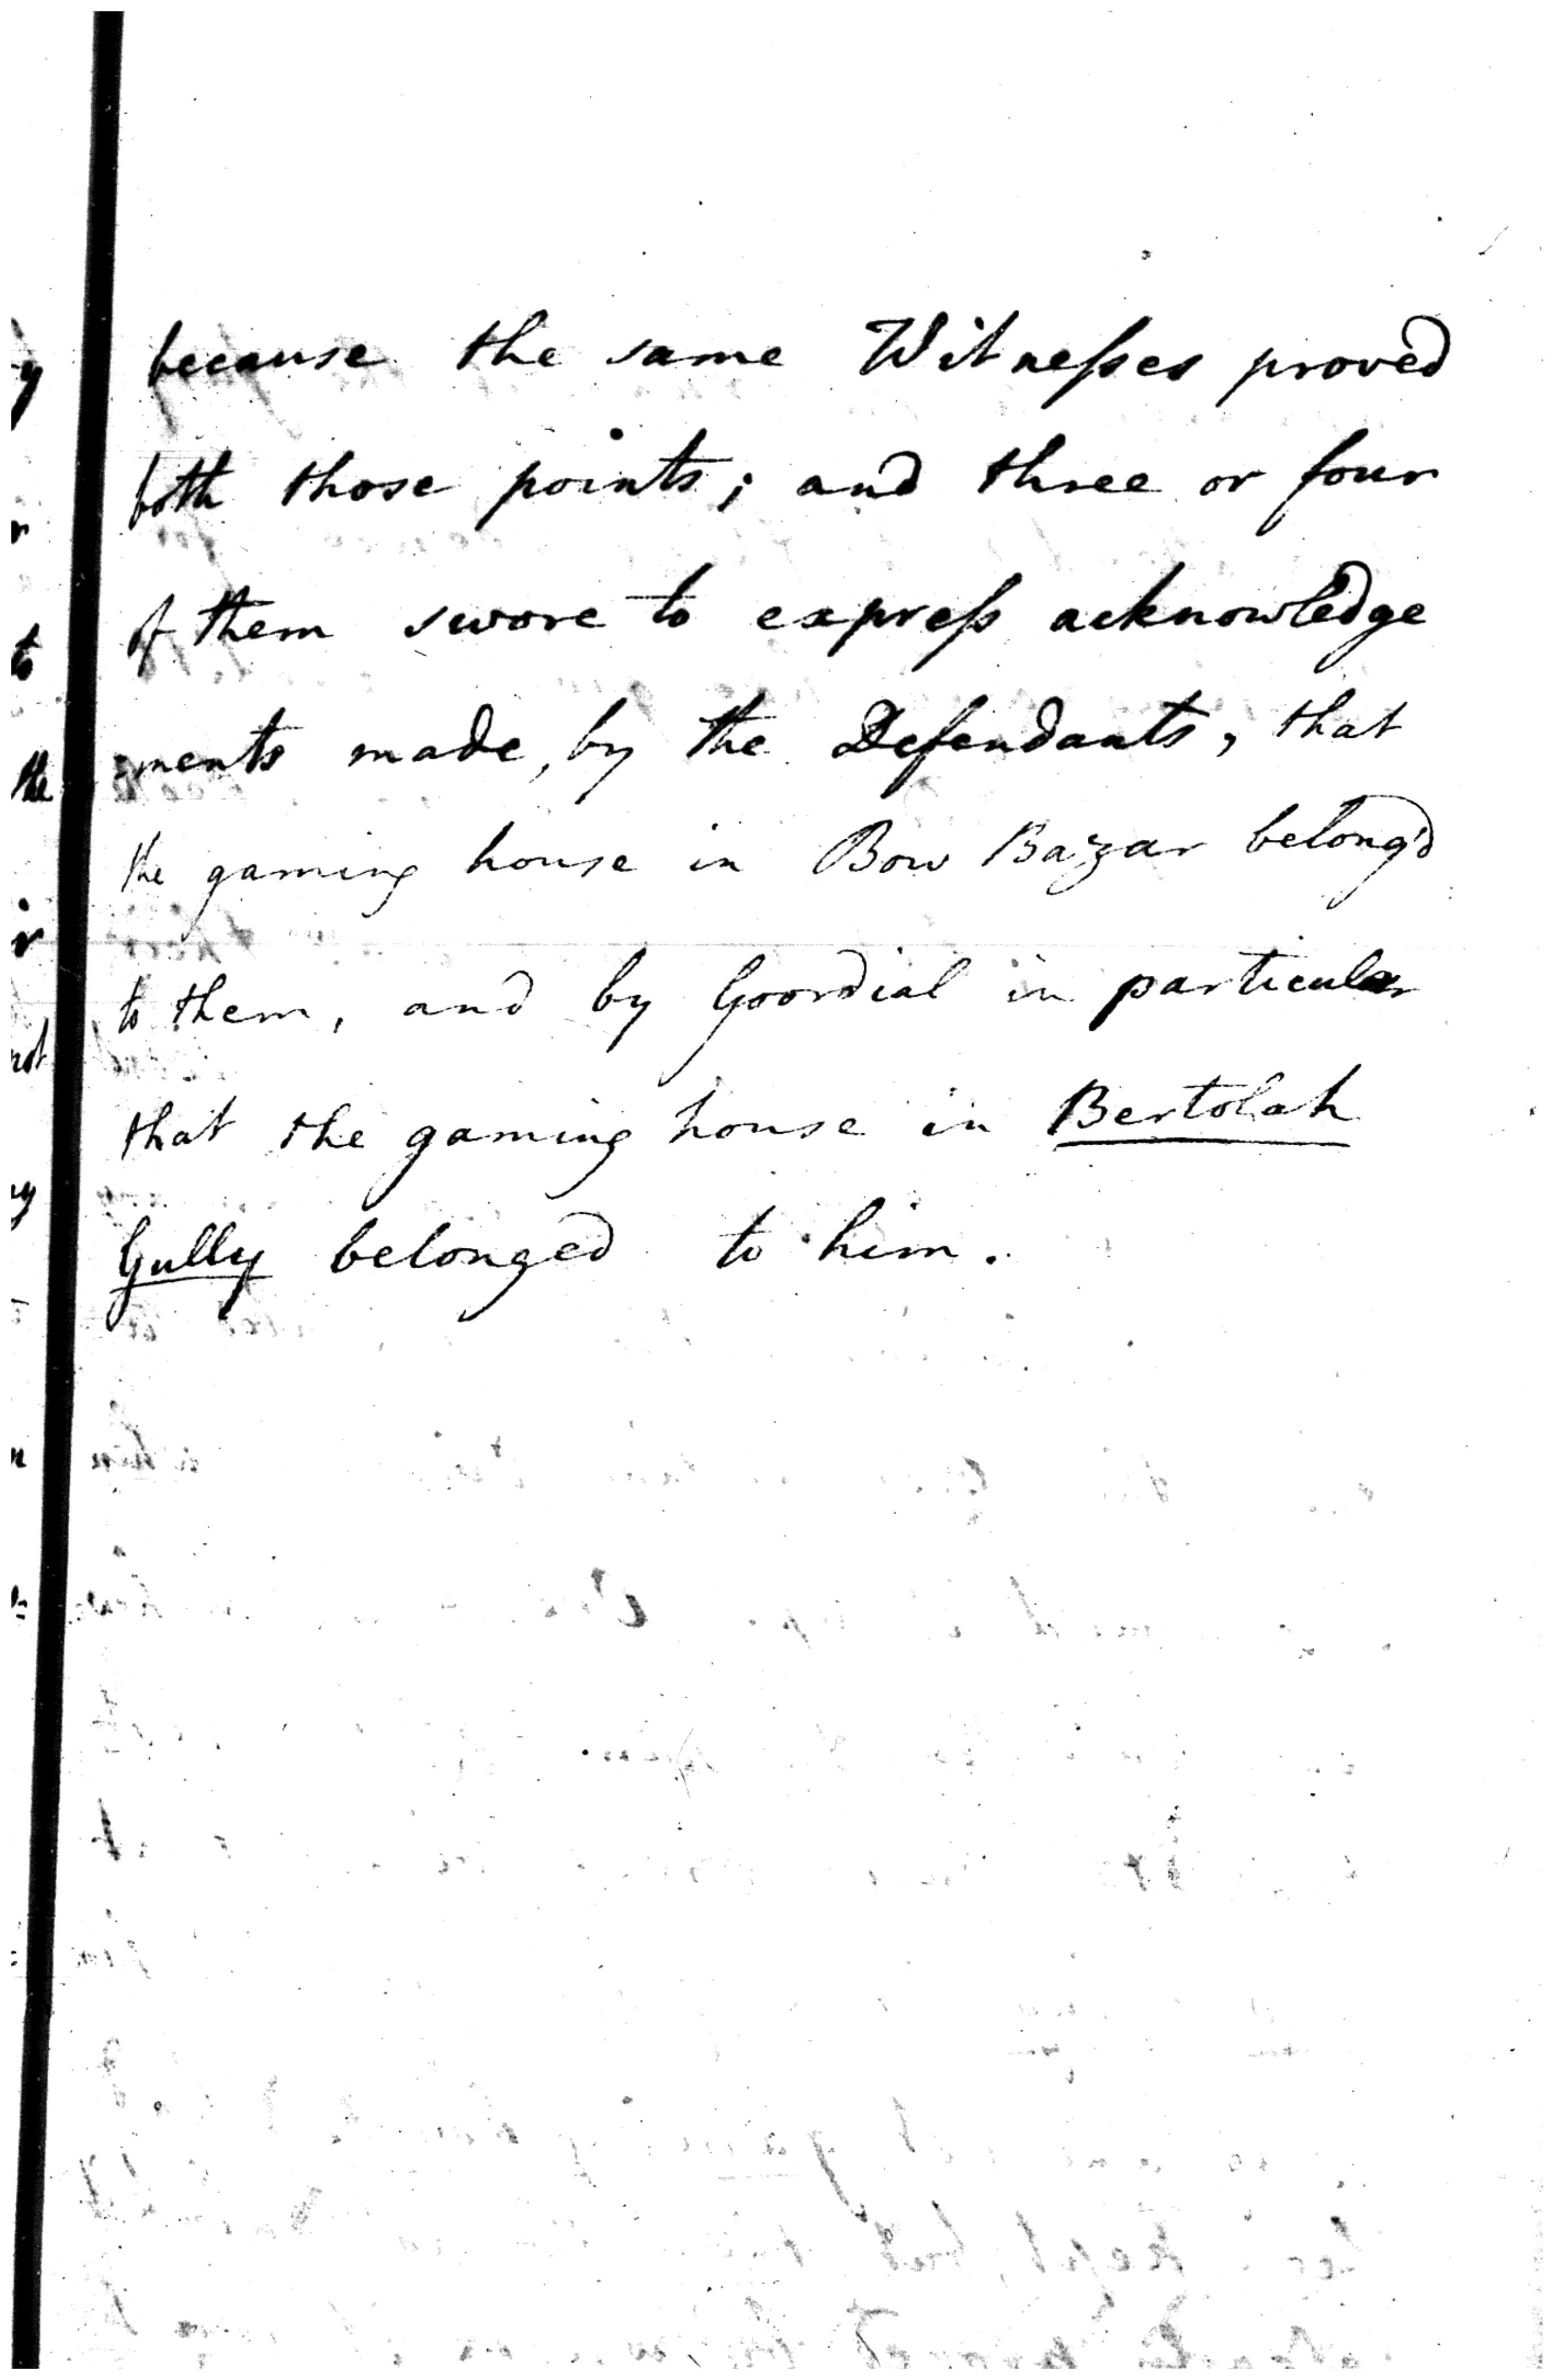 because the same Witnesses proved
both those points; and three or four
of them swore to express acknowledge
ments made, by the Defendants, that
the gaming house in Bow Bazar belong'd
to them, and by Goordial in particular
that the gaming house in Bertolah
Gully belonged to him.